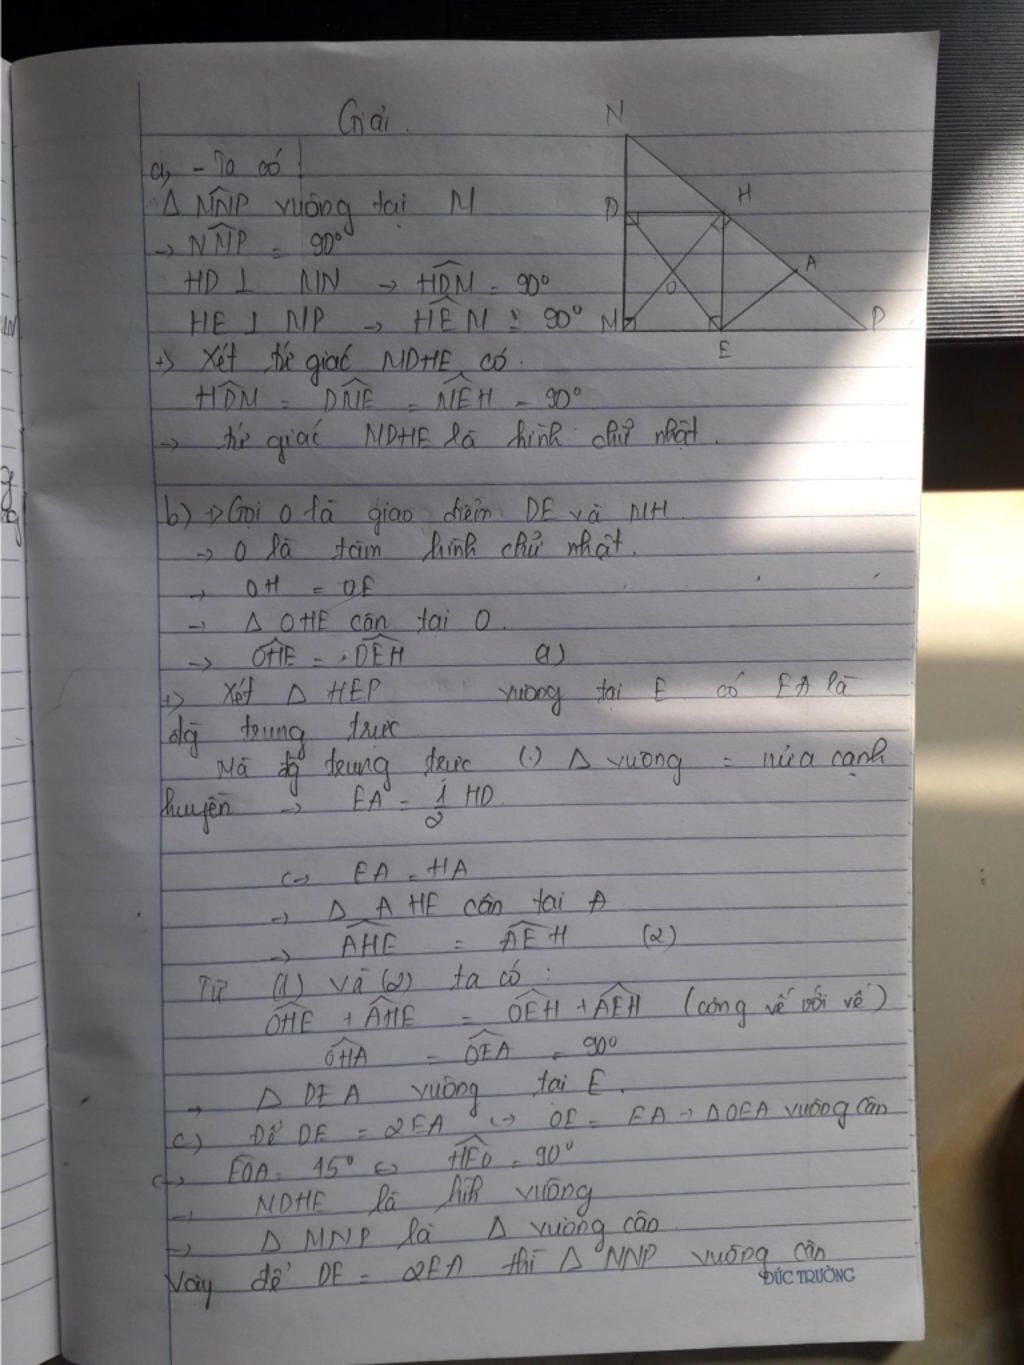 Giải.
N
a, - Ta có :
Δ MNP vuông tại M
→ NMP = 90°
HD ⊥ MN → HDM = 90°
HE ⊥ MP → HEM = 90°
D
H
A
O
M
P
E
+> Xét tứ giác MDHE có.
HDM = DME = MEH = 90°
→ tứ giác MDHE là hình chữ nhật.
b) +> Gọi O là giao điểm DE và MH
→ O là tâm hình chữ nhật.
→ OH = OE
→ Δ OHE cân tại O.
→ OHE = DEH (1)
+> Xét Δ HEP vuông tại E có EA là
đg trung trực
Mà đg trung trực (.) Δ vuông = nửa cạnh
huyền → EA = 1/2 HD.
<-> EA = HA
→ Δ AHE cân tại A
→ AHE = AEH (2)
Từ (1) và (2) ta có :
OHE + AHE = OEH + AEH (cộng vế với vế)
OHA = OEA = 90°
→ Δ DEA vuông tại E.
c) Để DE = 2EA <-> OE = EA → ΔOEA vuông cân
<-> EOA = 45° <=> HEO = 90°
→ MDHE là hìh vuông
→ Δ MNP là Δ vuông cân
Vậy để DE = 2EA thì Δ MNP vuông cân
ĐỨC TRƯỜNG